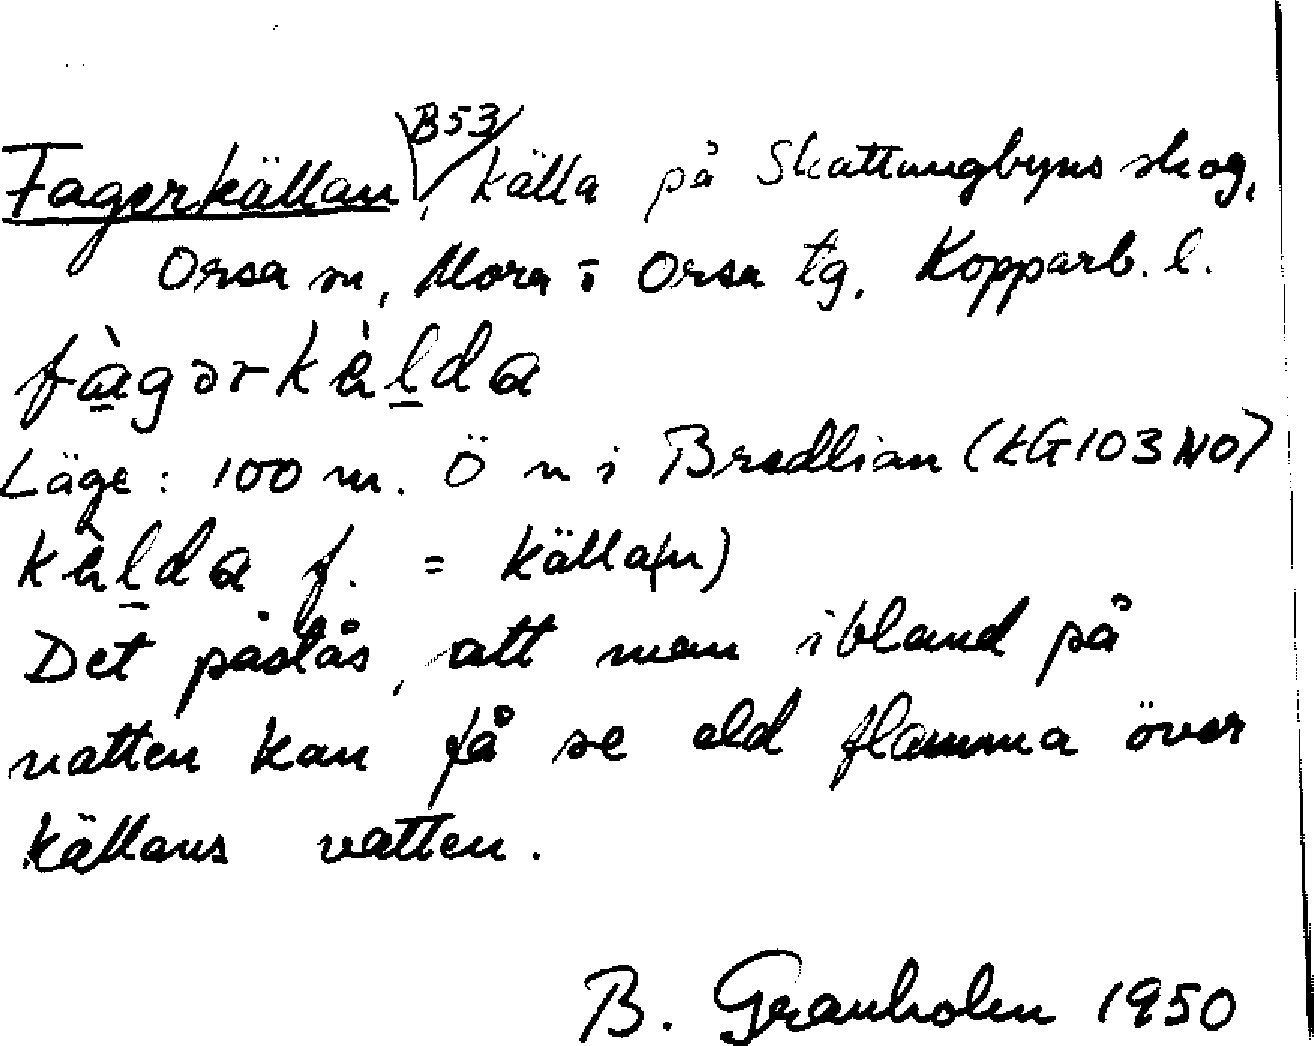 B53
Fagerkällan, källa på Skattungbyns skog,
Orsa sn, Mora o Orsa tg. Kopparb. l.
fàgərkèlda
Läge: 100 m. Ö n i Bredlian (kG103NO)
kèlda f. = källa(n)
Det påstås, att man ibland på
natten kan få se eld flamma över
källans vatten.
B. Granholm 1950